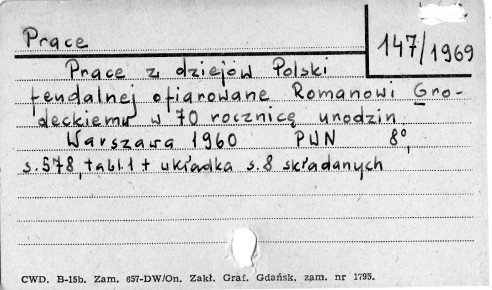 Prące
147/1969
Prące z dziejów Polski
fendalnej ofiarowane Romanowi Gro-
deckiemu w 70 rocznicę urodzin.
Warszawa 1960 PWN 8°,
s. 578, tabl. 1 + wkładka s. 8 składanych
CWD. B-15b. Zam. 657-DW/On. Zakł. Graf. Gdańsk, zam. nr 1795.